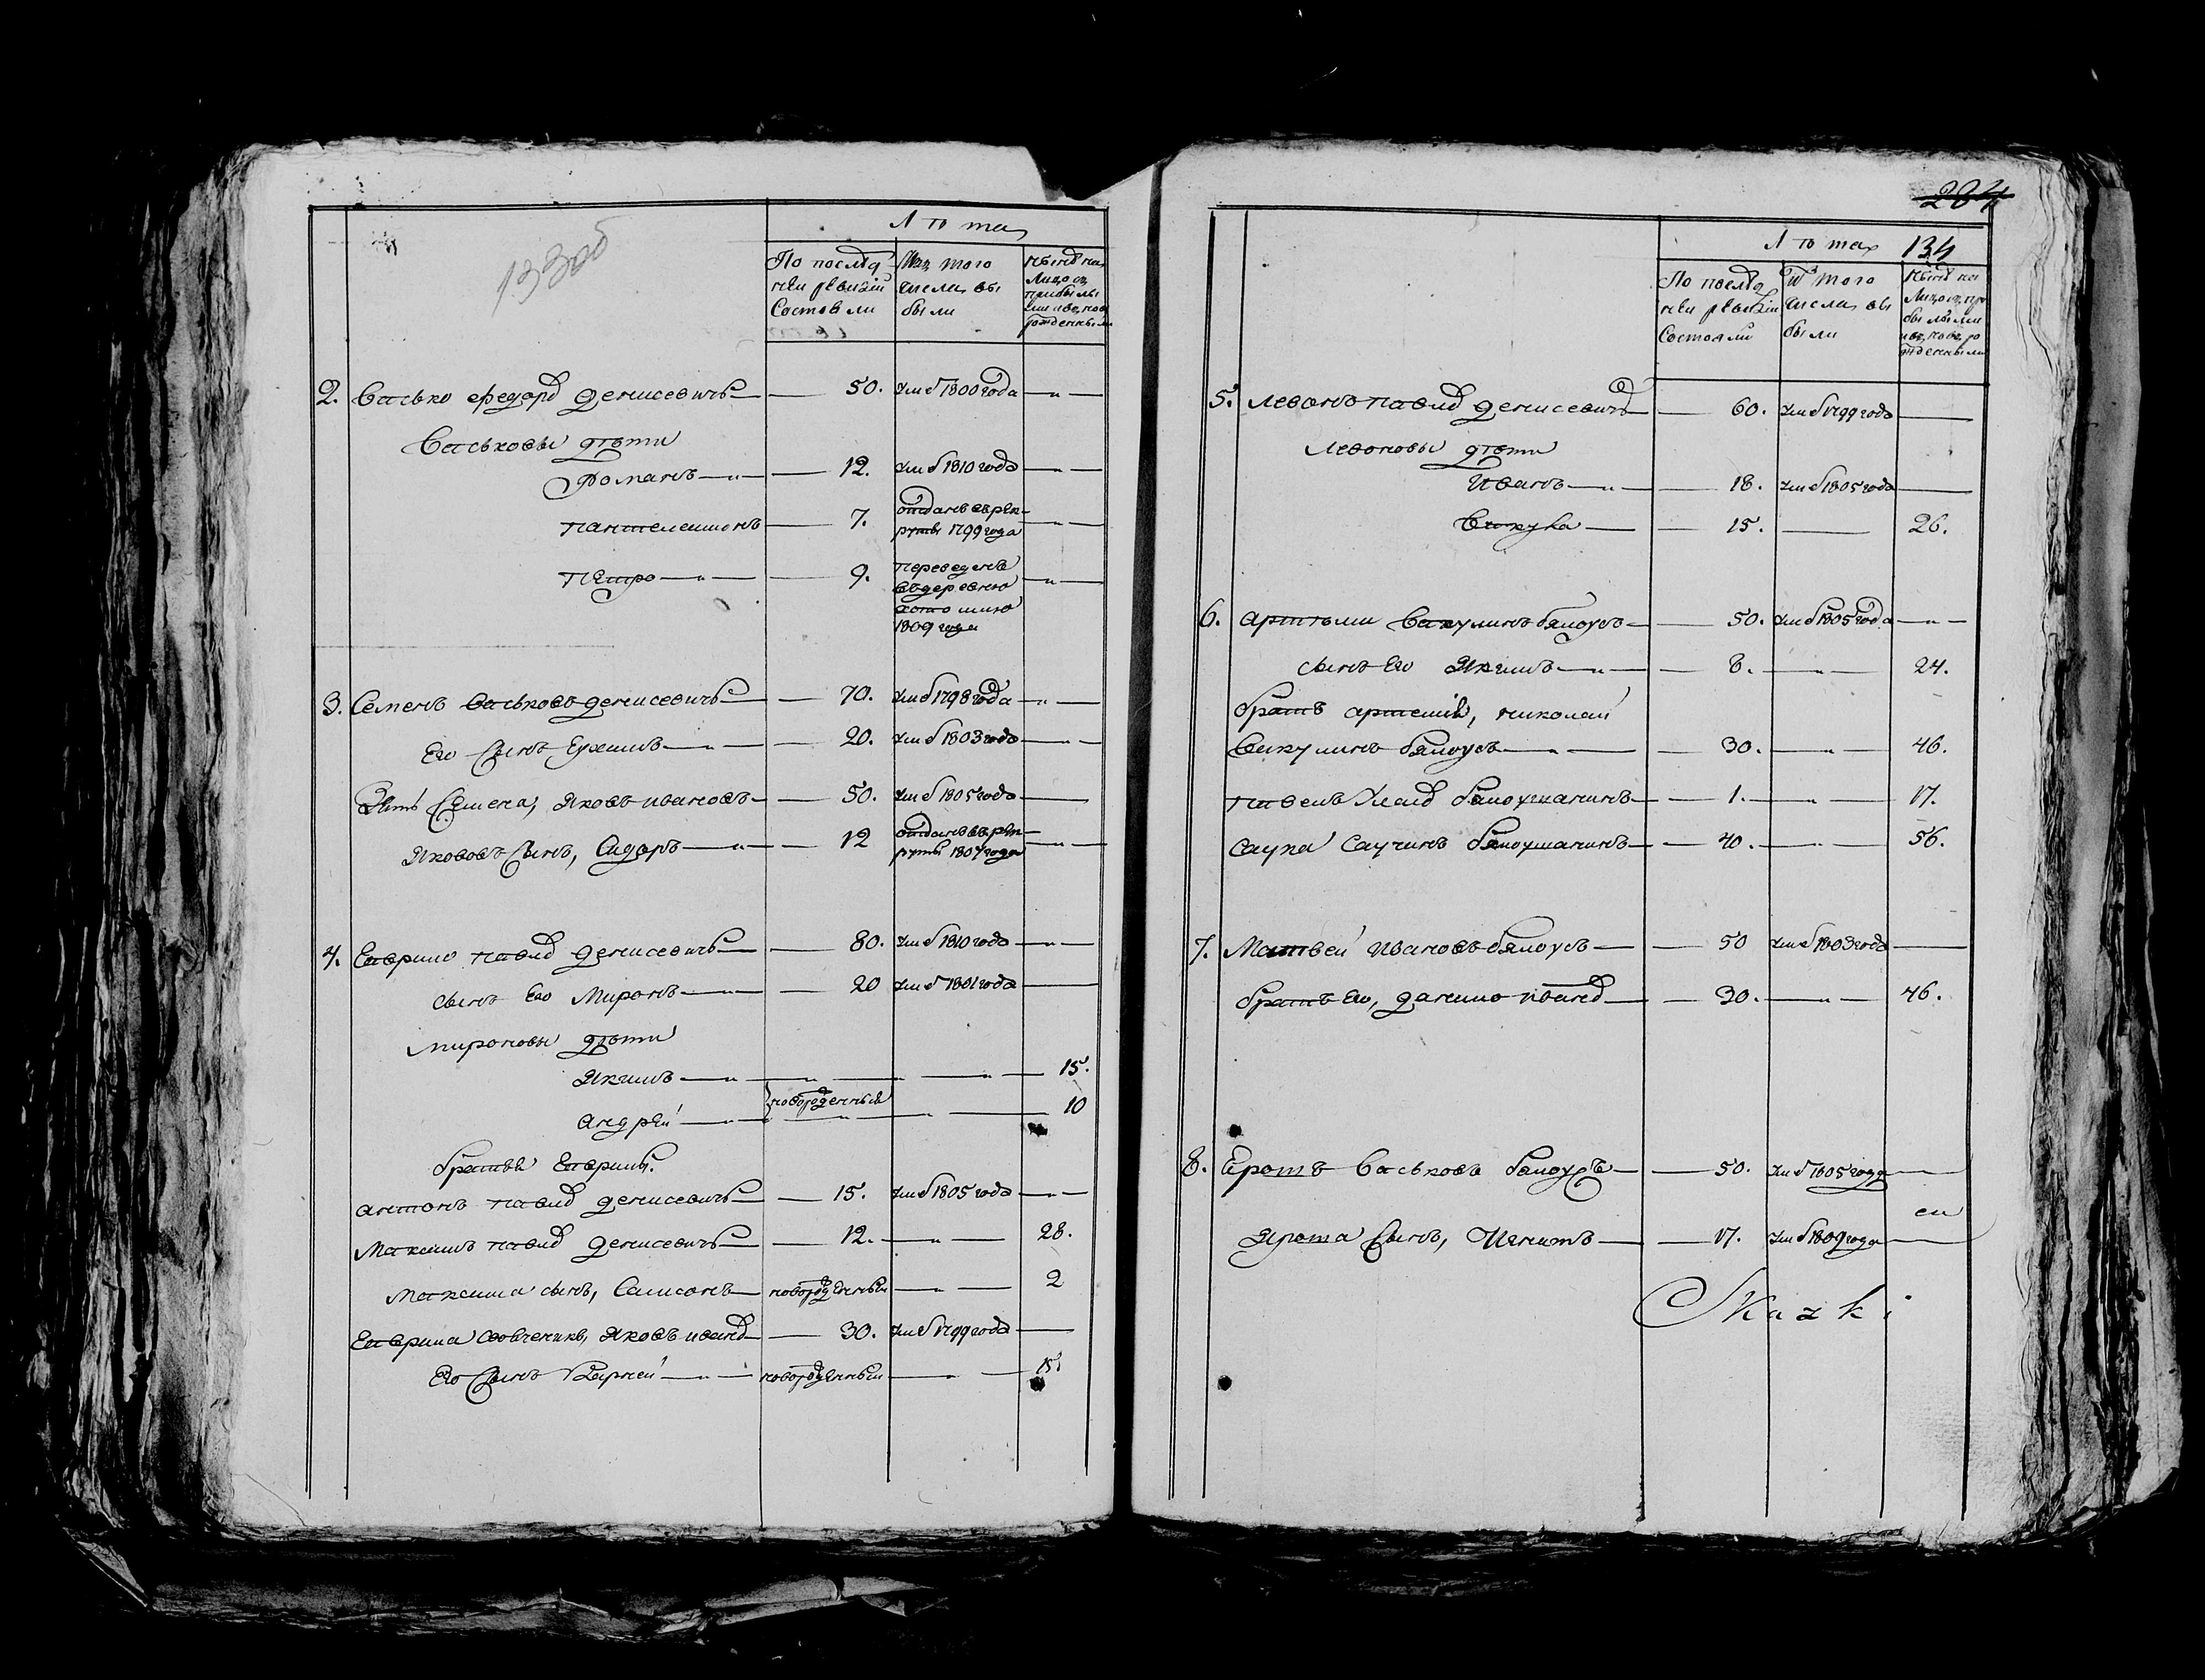 133об
Лѣта
По послѣд
ней ревизіи
Состояли
Изъ того
числа вы
были
Нынѣ на
Лицо съ
прибылы
ми и вновь
рожденными
2. Васько Федоров Денисевичъ — 50. Умеб 1800 года — „ —
Васьковы дѣти
Романъ — „ — 12. Умеб 1810 года — „ —
Пантелеимонъ — 7. отданъ въ рек
руты 1799 года — „ —
Петро — „ — 9. переведенъ
въ деревню
1809 года — „ —
3. Семенъ Васьковъ Денисевичъ — 70. Умеб 1798 года — „ —
Его Сынъ Ерхимъ — „ — 20. Умеб 1803 года — „ —
Зять Семена, Яковъ Ивановъ — 50. Умеб 1805 года —
Яковов Сынъ, Сидоръ — „ — 12 отданъ въ рек
руты 1807 года — „ —
4. Гаврило Павлов Денисевичъ — 80. Умеб 1810 года — „ —
Сынъ Его Миронъ — „ — 20 Умеб 1801 года —
Мироновы дѣти
Якимъ — „ — „ — „ — 15.
новорожденныя
Андрей — „ — „ — „ — 10
братья Гаврилы.
Антонъ Павлов Денисевичъ — 15. Умеб 1805 года — „ —
Максимъ Павлов Денисевичъ — 12. — „ — 28.
Максима сынъ, Самсонъ — новорожденный — „ — 2
Гаврила Яковъ Иванов — 30. Умеб 1799 года —
Его Сынъ Карней — „ — новорожденный — „ — 15.
284
134
Лѣта
По послѣд
ней ревизіи
Состояли
Из того
числа вы
были
Нынѣ на
Лицо съ при
былыми
и вновь ро
жденными
5. Левонъ Павлов Денисевичъ — 60. Умеб 1799 года —
Левоновы дѣти
Иванъ — „ — 18. Умеб 1805 года —
Винукa — 15. — 26.
6. Артемъ Вакулинъ Бялоусъ — 50. Умеб 1805 года — „ —
Сынъ Его Якимъ — „ — 8. — „ — 24.
братъ Артемія, Николай
Вакулинъ Бялоусъ — „ — 30. — „ — 46.
Павелъ Бялоушанинъ — 1. — „ — 17.
Саука Саучинъ Бялоушанинъ — 40. — „ — 56.
7. Матвей Ивановъ Бялоусъ — 50 Умеб 1803 года —
братъ Его, Данило Иванов — 30. — „ — 46.
8. Ярошъ Васьковъ Бялоусъ — 50. Умеб 1805 года —
Яроша Сынъ, Игнатъ — 17. Умеб 1809 года —
Skazki